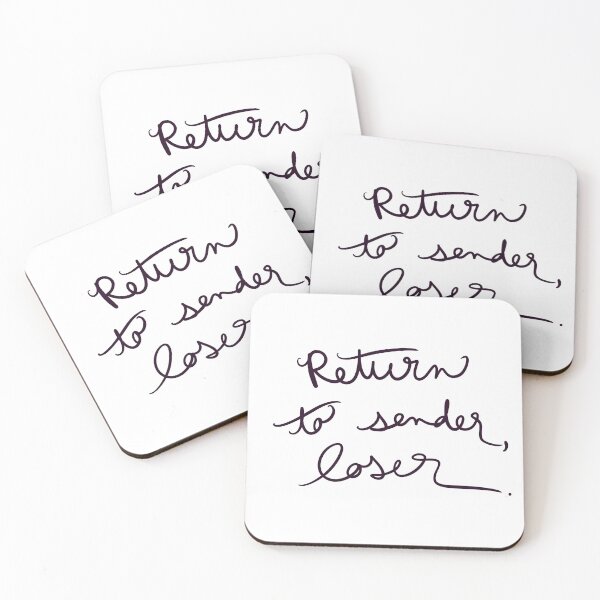 Return
to sender
Return
to sender,
loser.
Return
to sender,
loser
Return
to sender,
loser.